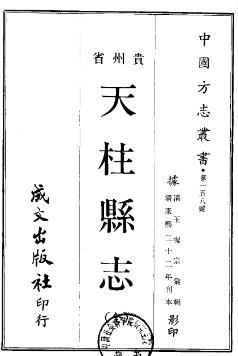 中國方志叢書·第一五八號
據清王復宗彙輯
清康熙二十二年刊本影印
貴州省
天柱縣志
成文出版社印行